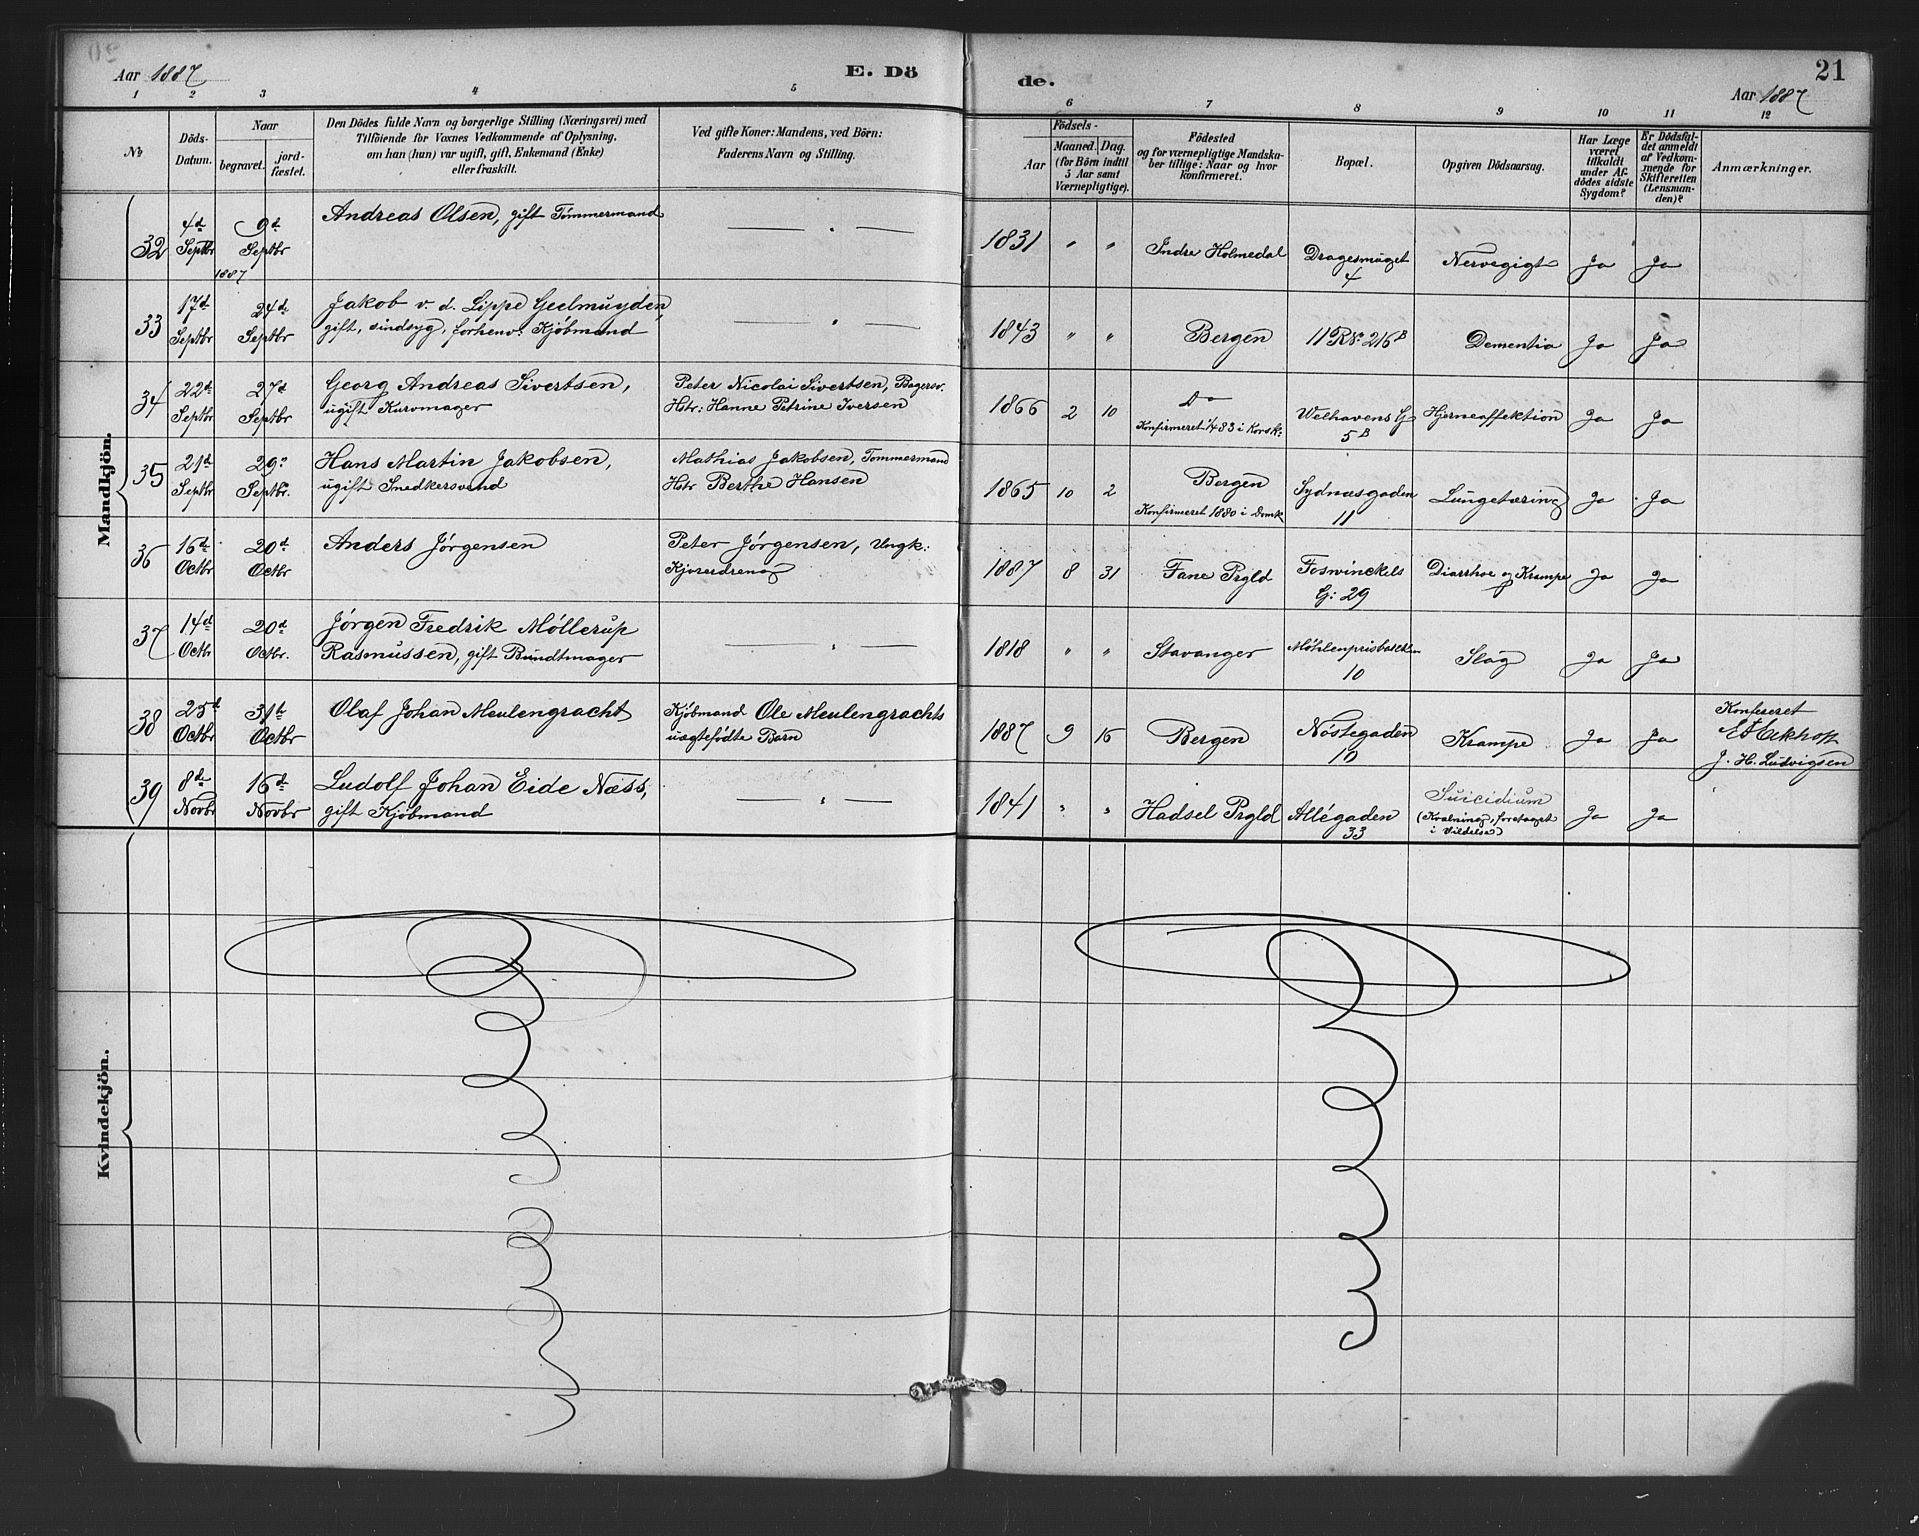 Aar 1887
E. Dö
de.
21
Aar 1887
1 2 3 4 5 6 7 8 9 10 11 12
No
Döds-
Datum.
Naar
begravet.
jord-
fæstet.
Den Dödes fulde Navn og borgerlige Stilling (Næringsvei) med
Tilföiende for Voxnes Vedkommende af Oplysning,
om han (hun) var ugift, gift, Enkemand (Enke)
eller fraskilt.
Ved gifte Koner: Mandens, ved Börn:
Faderens Navn og Stilling.
Födsels-
Aar
Maaned.
Dag.
(for Börn indtil
5 Aar samt
Værnepligtige).
Födested
og for værnepligtige Mandska-
ber tillige: Naar og hvor
konfirmeret.
Bopæl.
Opgiven Dödsaarsag.
Har Læge
været
tilkaldt
under Af-
dödes sidste
Sygdom?
Er Dödsfal-
det anmeldt
af Vedkom-
mende for
Skifteretten
(Lensman-
den)?
Anmærkninger.
Mandkjön.
32 4d Septbr 9d Septbr Andreas Olsen, gift Tømmermand — " — 1831 " " Indre Holmedal Dragesmuget 4 Nervegigt Ja Ja
1887
33 17d Septbr 24d Septbr Jakob v. d. Lippe Geelmuyden,
gift, sindsyg, forhenv: Kjøbmand — " — 1843 " " Bergen 11 R No 216B Dementia Ja Ja
34 22d Septbr 27d Septbr Georg Andreas Sivertsen,
ugift Kurvmager Peter Nicolai Sivertsen, Bagersv.
Hstr: Hanne Petrine Iversen 1866 2 10 Do
Konfirmeret 1/4 83 i Korsk: Welhavens G 5B Hjerneaffektion Ja Ja
35 21d Septbr 29d Septbr. Hans Martin Jakobsen,
ugift Snedkersvend Mathias Jakobsen, Tømmermand
Hstr Berthe Hansen 1865 10 2 Bergen
Konfirmeret 1880 i Domk Sydnæsgaden 11 Lungetæring Ja Ja
36 16d Octbr 20d Octbr Anders Jørgensen Peter Jørgensen, Ungk:
Kjøredreng 1887 8 31 Fane Prgld Foswinckels G: 29 Diarrhoe og Krampe Ja Ja
37 14d Octbr 20d Octbr. Jørgen Fredrik Møllerup
Rasmussen, gift Bundtmager — " — 1818 " " Stavanger Møhlenprisbakken 10 Slag Ja Ja
38 25d Octbr 31te Octbr Olaf Johan Meulengracht Kjøbmand Ole Meulengrachts
uægtefødte Barn 1887 9 15 Bergen Nøstegaden 10 Krampe Ja Ja Konfereret
J. H. Ludvigsen
39 8de Novbr 16d Novbr Ludolf Johan Eide Næss,
gift Kjøbmand — " — 1841 " " Hadsel Prgld Allégaden 33 Suicidium
(Kvælning, foretaget
i Vildelse) Ja Ja
Kvindekjön.